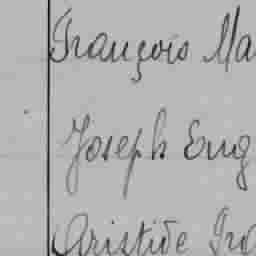 François Ma
Joseph Eug
Aristide Fra